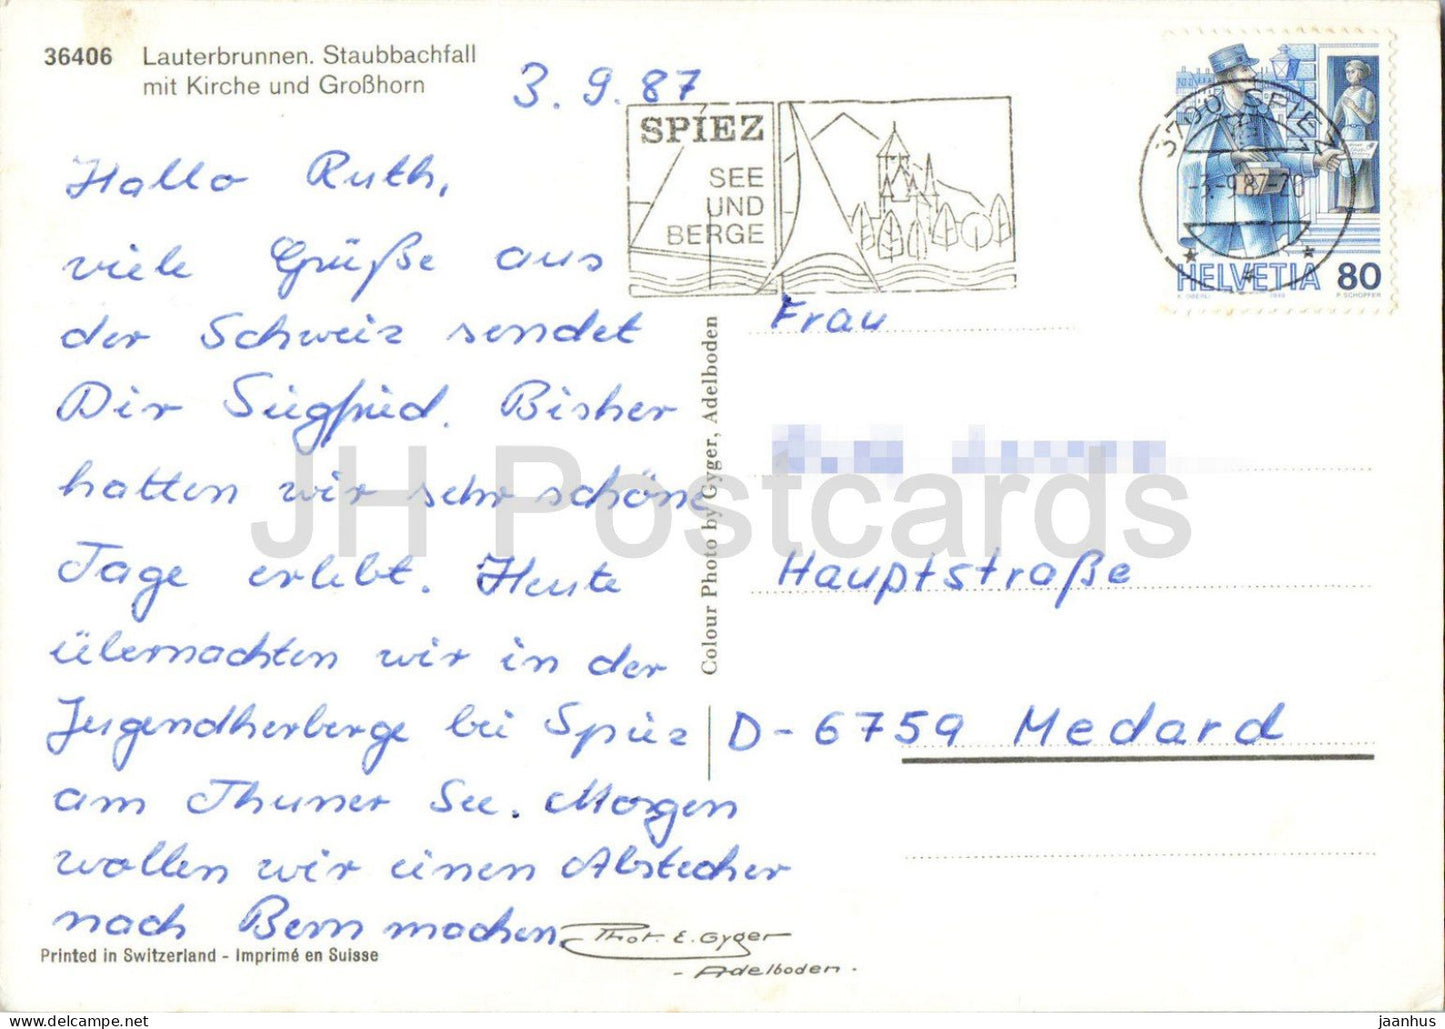 36406 Lauterbrunnen. Staubbachfall
mit Kirche und Großhorn
3.9.87
Hallo Ruth,
viele Grüße aus
der Schweiz sendet
Dir Siegfried. Bisher
hatten wir sehr schöne
Tage erlebt. Heute
übernachten wir in der
Jugendherberge bei Spiez
am Thuner See. Morgen
wollen wir einen Abstecher
nach Bern machen.
Printed in Switzerland - Imprimé en Suisse
Phot. E. Gyger
- Adelboden.
Colour Photo by Gyger, Adelboden
SPIEZ
SEE
UND
BERGE
3700 SPIEZ
-3.-9.87-20
HELVETIA 80
K. OBERLI 1986 P. SCHOPFER
Frau
Hauptstraße
D-6759 Medard
JH Postcards
jaanhus